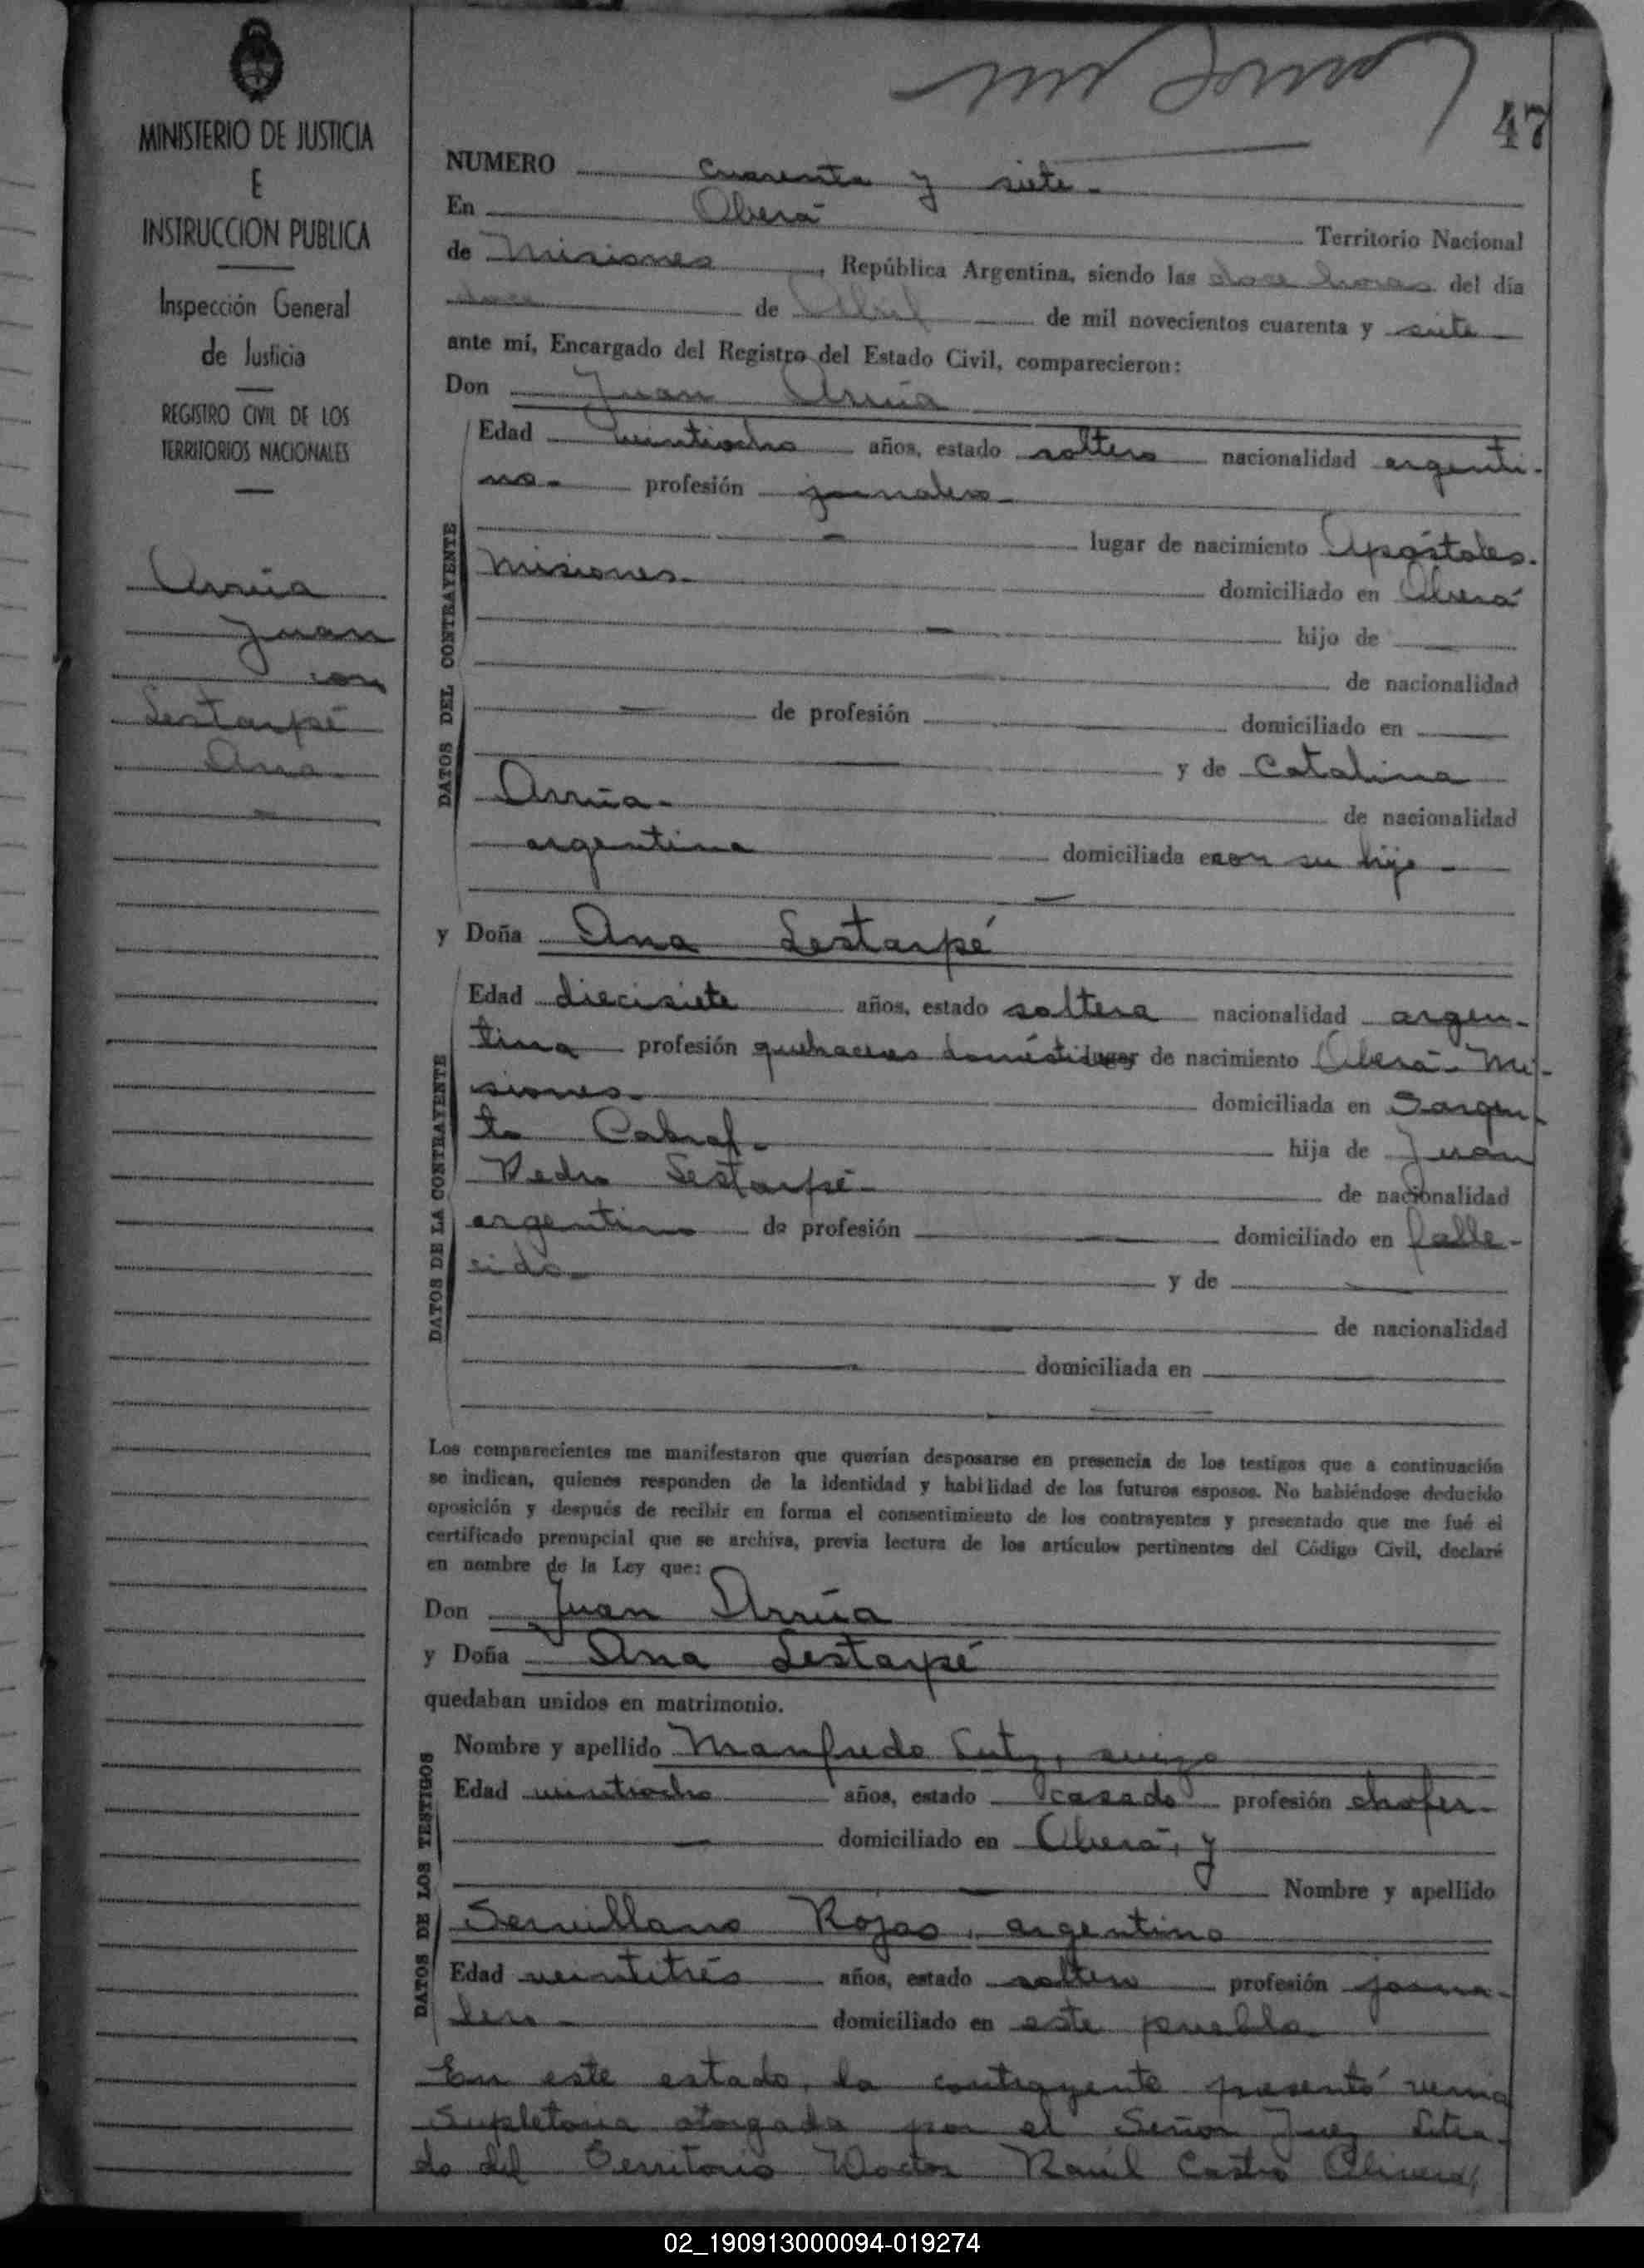 47
MINISTERIO DE JUSTICIA
E
INSTRUCCION PUBLICA
Inspección General
de Justicia
REGISTRO CIVIL DE LOS
TERRITORIOS NACIONALES
Arrúa
Juan
con
Lestarpé
Ana
NUMERO cuarenta y siete
En Oberá Territorio Nacional
de Misiones, República Argentina, siendo las doce horas del día
doce de Abril de mil novecientos cuarenta y siete
ante mí, Encargado del Registro del Estado Civil, comparecieron:
Don Juan Arrúa
DATOS DEL CONTRAYENTE
Edad veintiocho años, estado soltero nacionalidad argenti-
no.- profesión jornalero
lugar de nacimiento Apóstoles.
Misiones. domiciliado en Oberá
hijo de
de nacionalidad
de profesión domiciliado en
y de Catalina
Arrúa. de nacionalidad
argentina domiciliada en con su hijo
y Doña Ana Lestarpé
DATOS DE LA CONTRAYENTE
Edad diecisiete años, estado soltera nacionalidad argen-
tina profesión quehaceres domésticos lugar de nacimiento Oberá - Mi-
siones. domiciliada en Sargen-
to Cabral. hija de Juan
Pedro Lestarpé de nacionalidad
argentino de profesión domiciliado en falle-
cido y de
de nacionalidad
domiciliada en
Los comparecientes me manifestaron que querían desposarse en presencia de los testigos que a continuación
se indican, quienes responden de la identidad y habilidad de los futuros esposos. No habiéndose deducido
oposición y después de recibir en forma el consentimiento de los contrayentes y presentado que me fué el
certificado prenupcial que se archiva, previa lectura de los artículos pertinentes del Código Civil, declaré
en nombre de la Ley que:
Don Juan Arrúa
y Doña Ana Lestarpé
quedaban unidos en matrimonio.
DATOS DE LOS TESTIGOS
Nombre y apellido Manfredo Lutz, suizo
Edad veintiocho años, estado casado profesión chofer
domiciliado en Oberá, y
Nombre y apellido
Servillano Rojas, argentino
Edad veintitrés años, estado soltero profesión jorna-
lero domiciliado en este pueblo
En este estado, la contrayente presentó venia
supletoria otorgada por el Señor Juez Letra-
do del Territorio Doctor Raúl Castro Olivera,
02_190913000094-019274